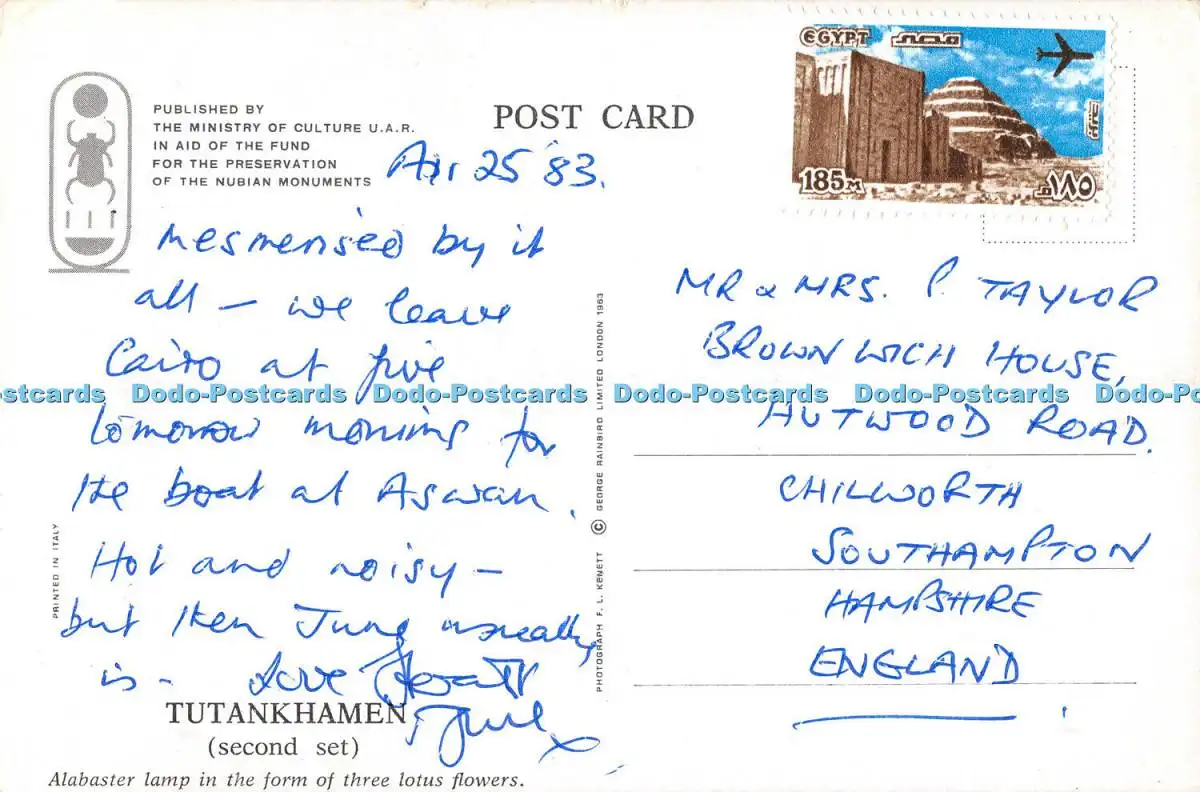 EGYPT مصر
185M ١٨٥م
PUBLISHED BY
THE MINISTRY OF CULTURE U.A.R.
IN AID OF THE FUND
FOR THE PRESERVATION
OF THE NUBIAN MONUMENTS
POST CARD
25 '83.
Mesmerised by it
all — we leave
Cairo at five
tomorrow morning for
the boat at Aswan.
Hot and noisy —
but then June usually
is - Love
June x
MR & MRS. P. TAYLOR
BROWNWICH HOUSE,
HUTWOOD ROAD.
CHILWORTH
SOUTHAMPTON
HAMPSHIRE
ENGLAND
-Postcards Dodo-Postcards Dodo-Postcards Dodo-Postcards Dodo-Postcards Dodo-Pos
PRINTED IN ITALY
PHOTOGRAPH F. L. KENETT © GEORGE RAINBIRD LIMITED LONDON 1963
TUTANKHAMEN
(second set)
Alabaster lamp in the form of three lotus flowers.